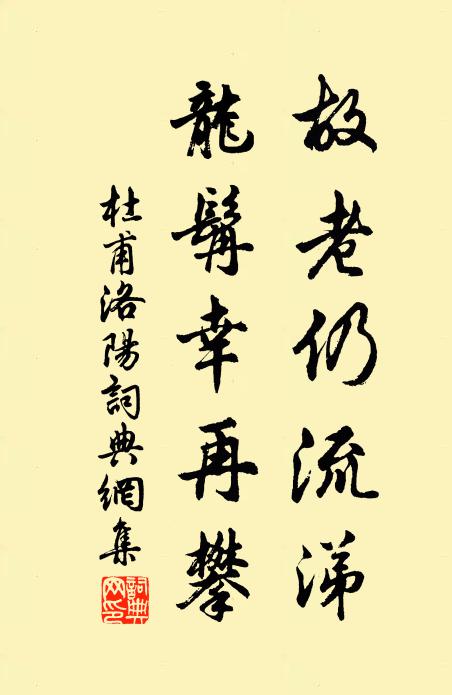 故老仍流涕
龍髯幸再攀
杜甫洛陽詞典網集
詞典网印